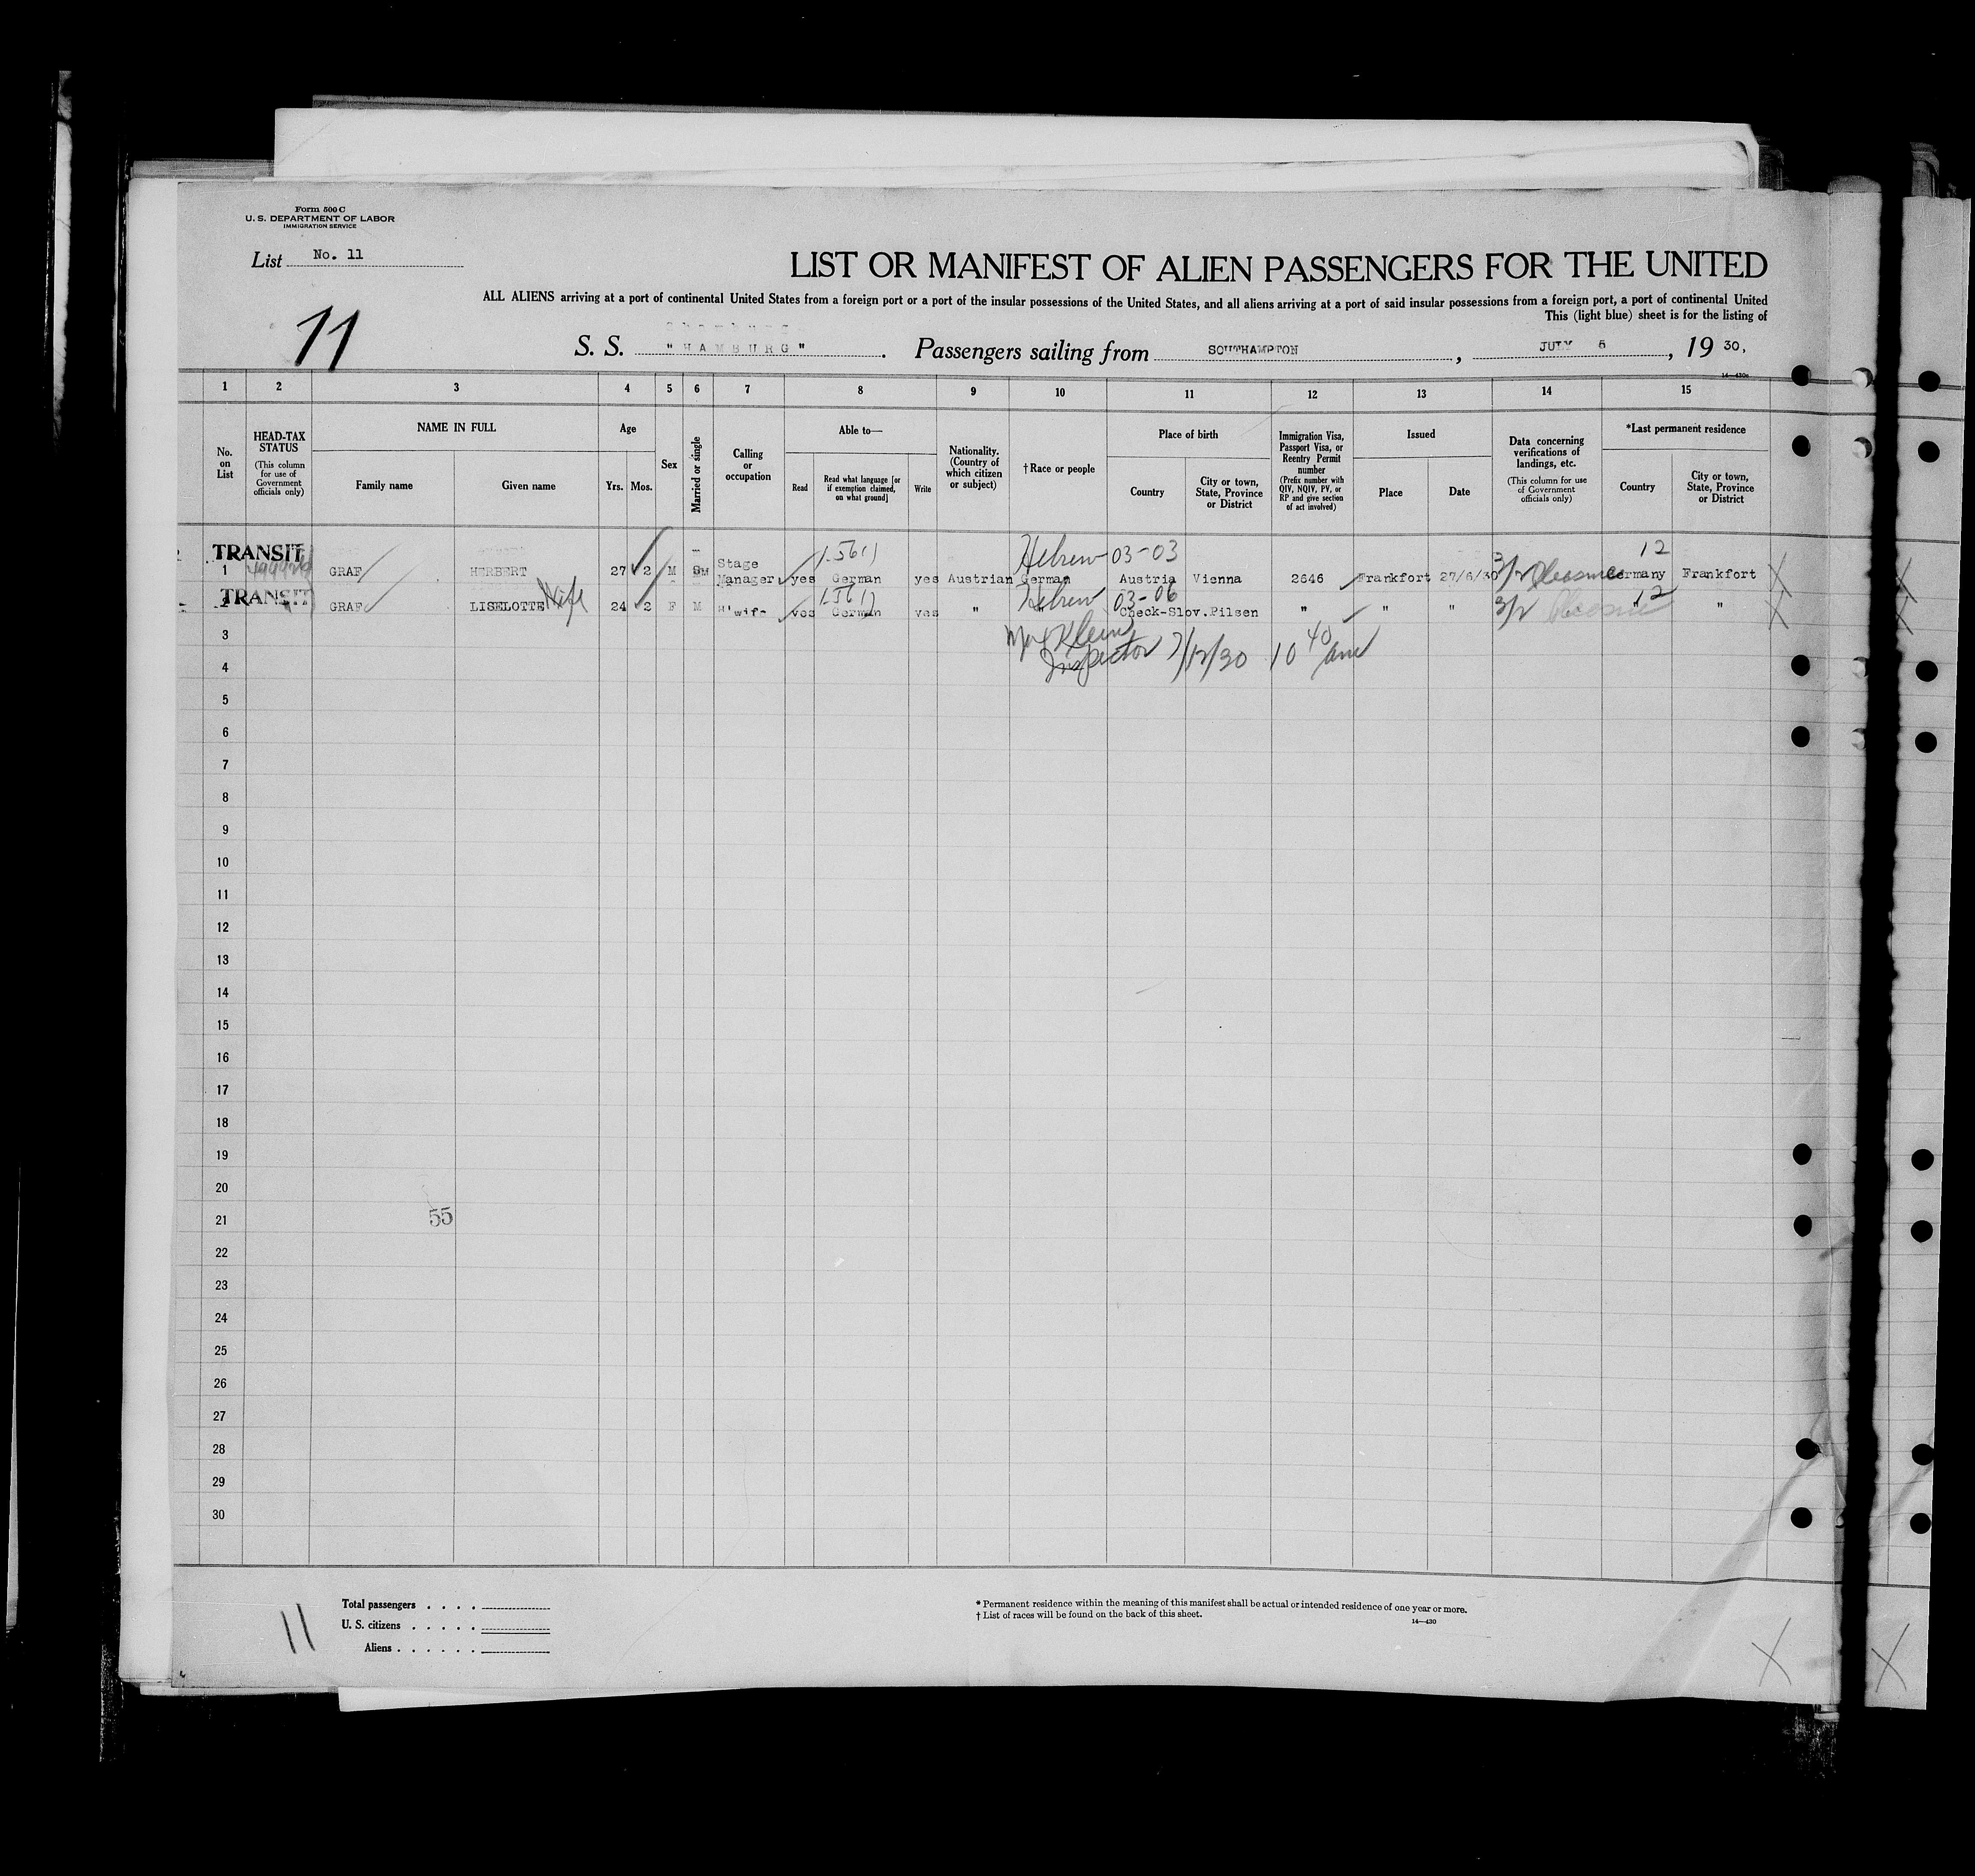 Form 500 C
U. S. DEPARTMENT OF LABOR
IMMIGRATION SERVICE
List No. 11
LIST OR MANIFEST OF ALIEN PASSENGERS FOR THE UNITED
ALL ALIENS arriving at a port of continental United States from a foreign port or a port of the insular possessions of the United States, and all aliens arriving at a port of said insular possessions from a foreign port, a port of continental United
This (light blue) sheet is for the listing of
11
S. S. "HAMBURG". Passengers sailing from SOUTHAMPTON, JULY 5, 1930,
1 2 3 4 5 6 7 8 9 10 11 12 13 14 15
No. on List
HEAD-TAX STATUS (This column for use of Government officials only)
NAME IN FULL
Family name
Given name
Age
Yrs. Mos.
Sex
Married or single
Calling or occupation
Able to—
Read
Read what language [or if exemption claimed, on what ground]
Write
Nationality. (Country of which citizen or subject)
† Race or people
Place of birth
Country
City or town, State, Province or District
Immigration Visa, Passport Visa, or Reentry Permit number (Prefix number with QIV, NQIV, PV, or RP and give section of act involved)
Issued
Place
Date
Data concerning verifications of landings, etc. (This column for use of Government officials only)
*Last permanent residence
Country
City or town, State, Province or District
TRANSIT Hebrew 03-03 12
1 GRAF HERBERT 27 2 M M Stage Manager yes German yes Austrian German Austria Vienna 2646 Frankfort 27/6/30 Germany Frankfort
TRANSIT Hebrew 03-06 12
2 GRAF LISELOTTE Wife 24 2 F M H'wife yes German yes " " Check-Slov. Pilsen " " " " "
3 Klein
4 Inspector 7/12/30 10 40 am
5
6
7
8
9
10
11
12
13
14
15
16
17
18
19
20
21 55
22
23
24
25
26
27
28
29
30
11
Total passengers . . . .
U. S. citizens . . . . .
Aliens . . . . . .
* Permanent residence within the meaning of this manifest shall be actual or intended residence of one year or more.
† List of races will be found on the back of this sheet.
14—430